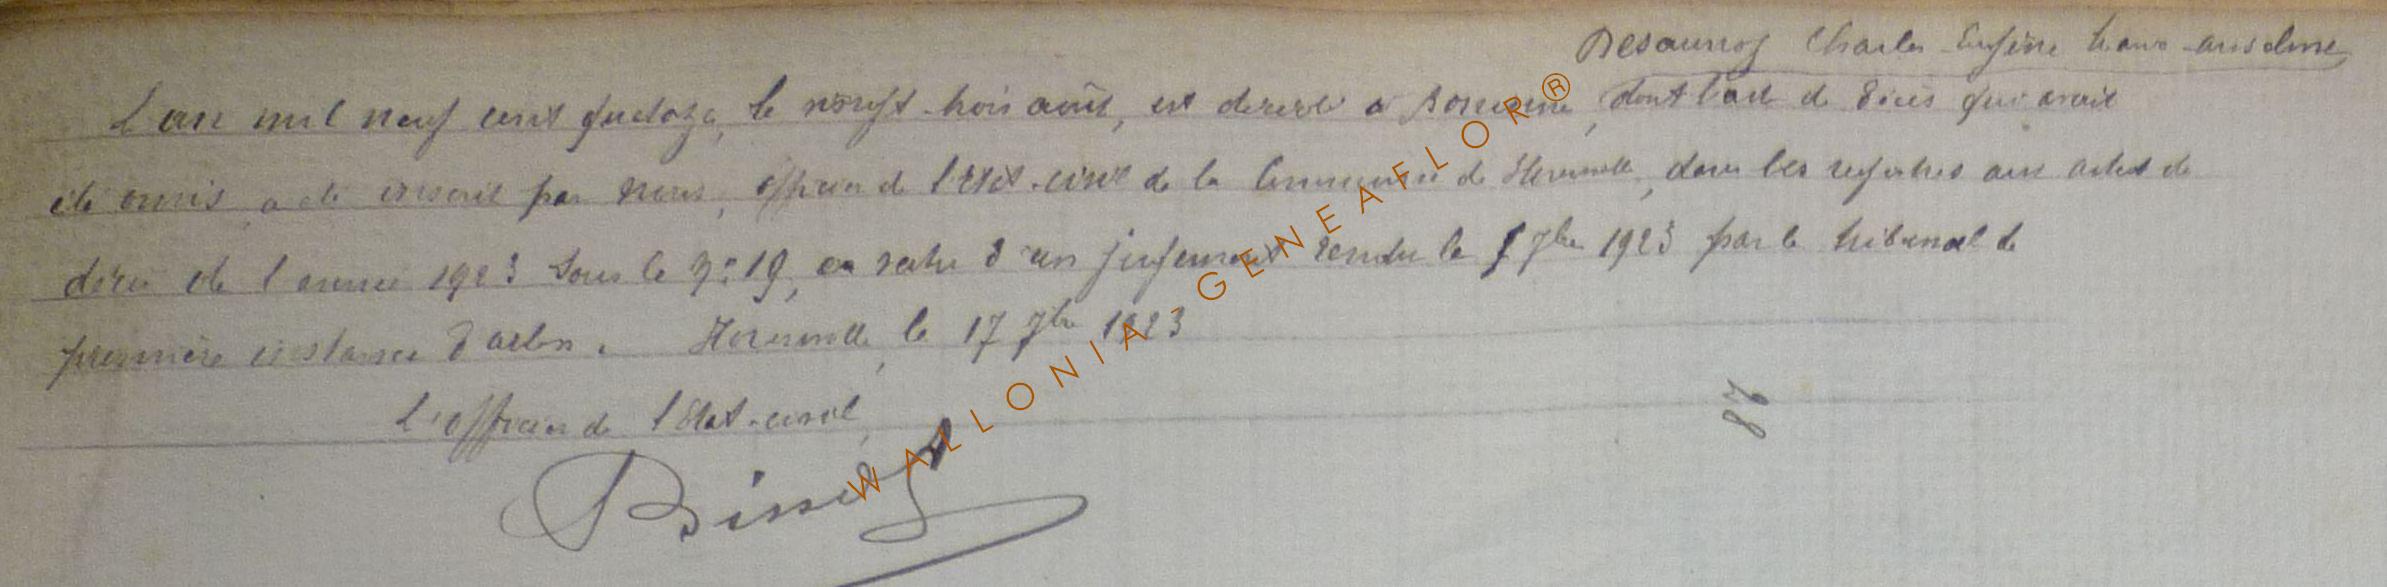 Desaunoy Charles Eugène anselme
L'an mil neuf cent quatorze, le vingt-trois août, est décédé à dont l'acte de décès qui avait
été omis, a été inscrit par nous, officier de l'Etat-civil de la Commune de dans les registres aux actes de
décès de l'année 1923 sous le N° 19, en vertu d'un jugement rendu le 7bre 1923 par le tribunal de
première instance d'arlon. le 17 7bre 1923
L'officier de l'Etat-civil,
98
WALLONIA - GENEAFLOR®